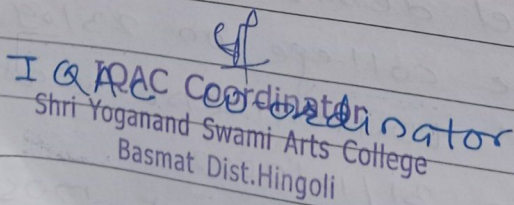 IQAC Coordinator
Shri Yoganand Swami Arts College
Basmat Dist.Hingoli